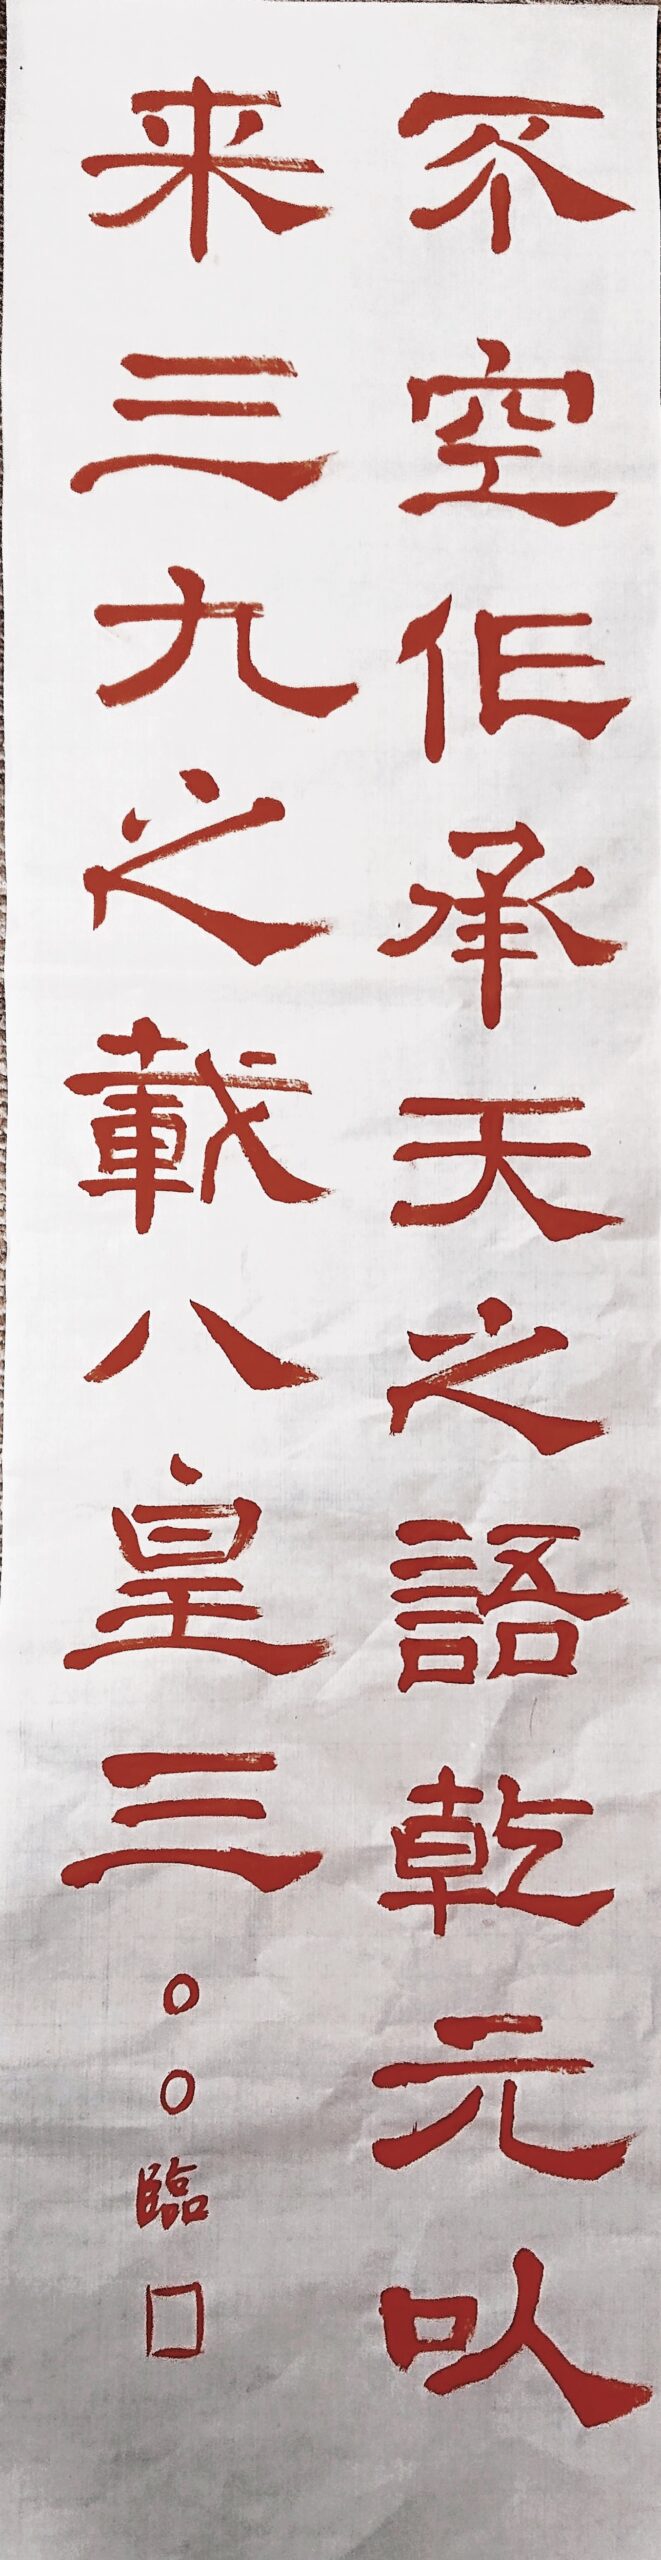 不空作承天之語乾元以
来三九之載八皇三○○臨□